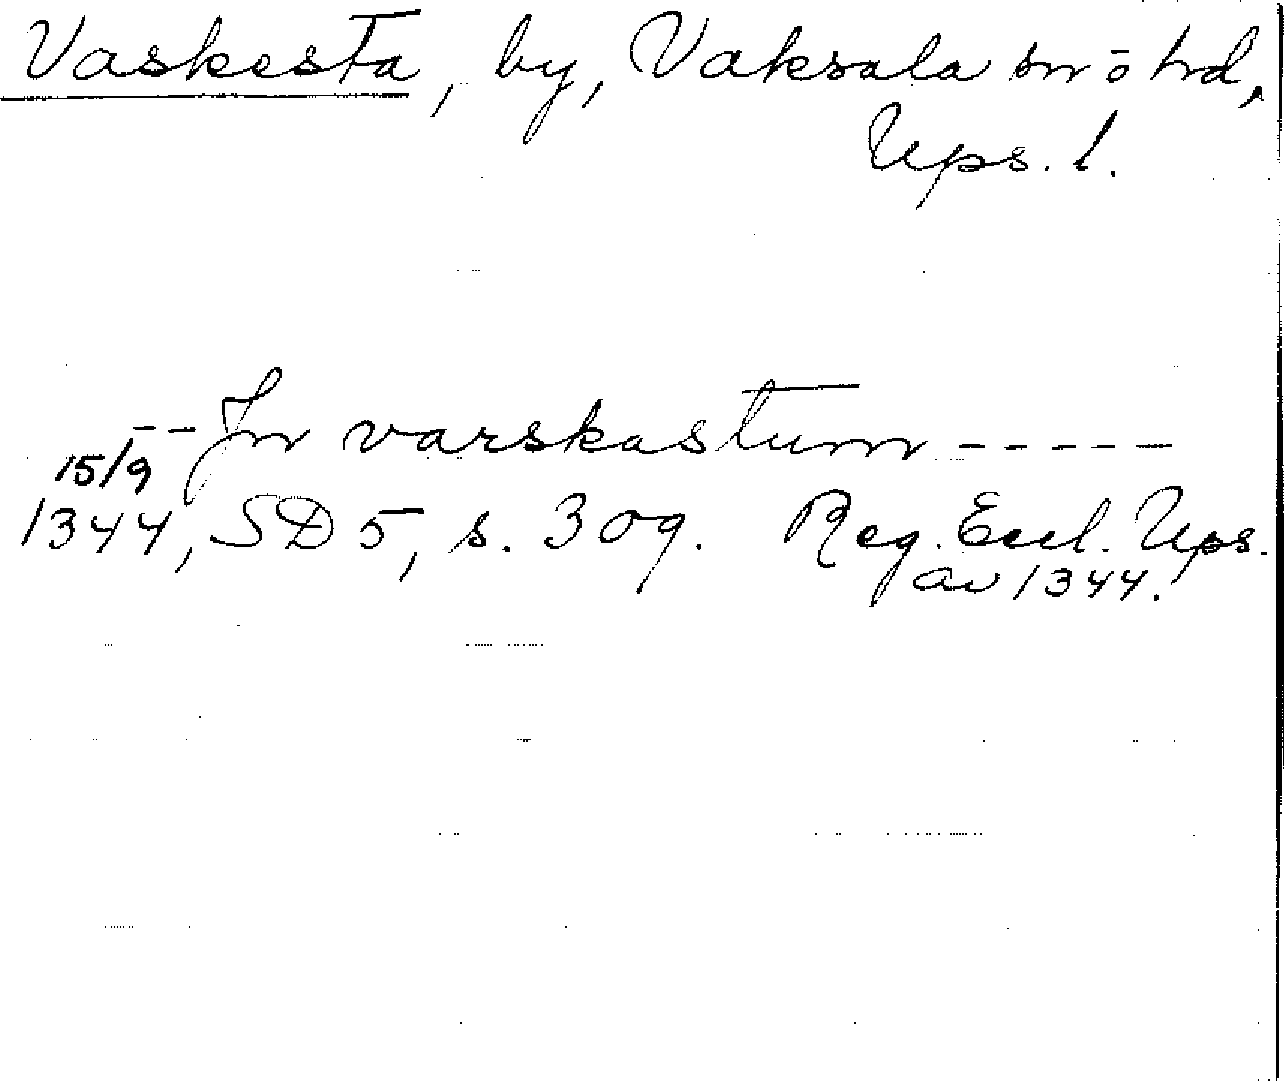 Vaskesta, by, Vaksala sn ō hd,
Ups. l.
-- Jn varskastum -----
15/9
1344, SD 5, s. 309. Reg. Eccl. Ups.
av 1344.